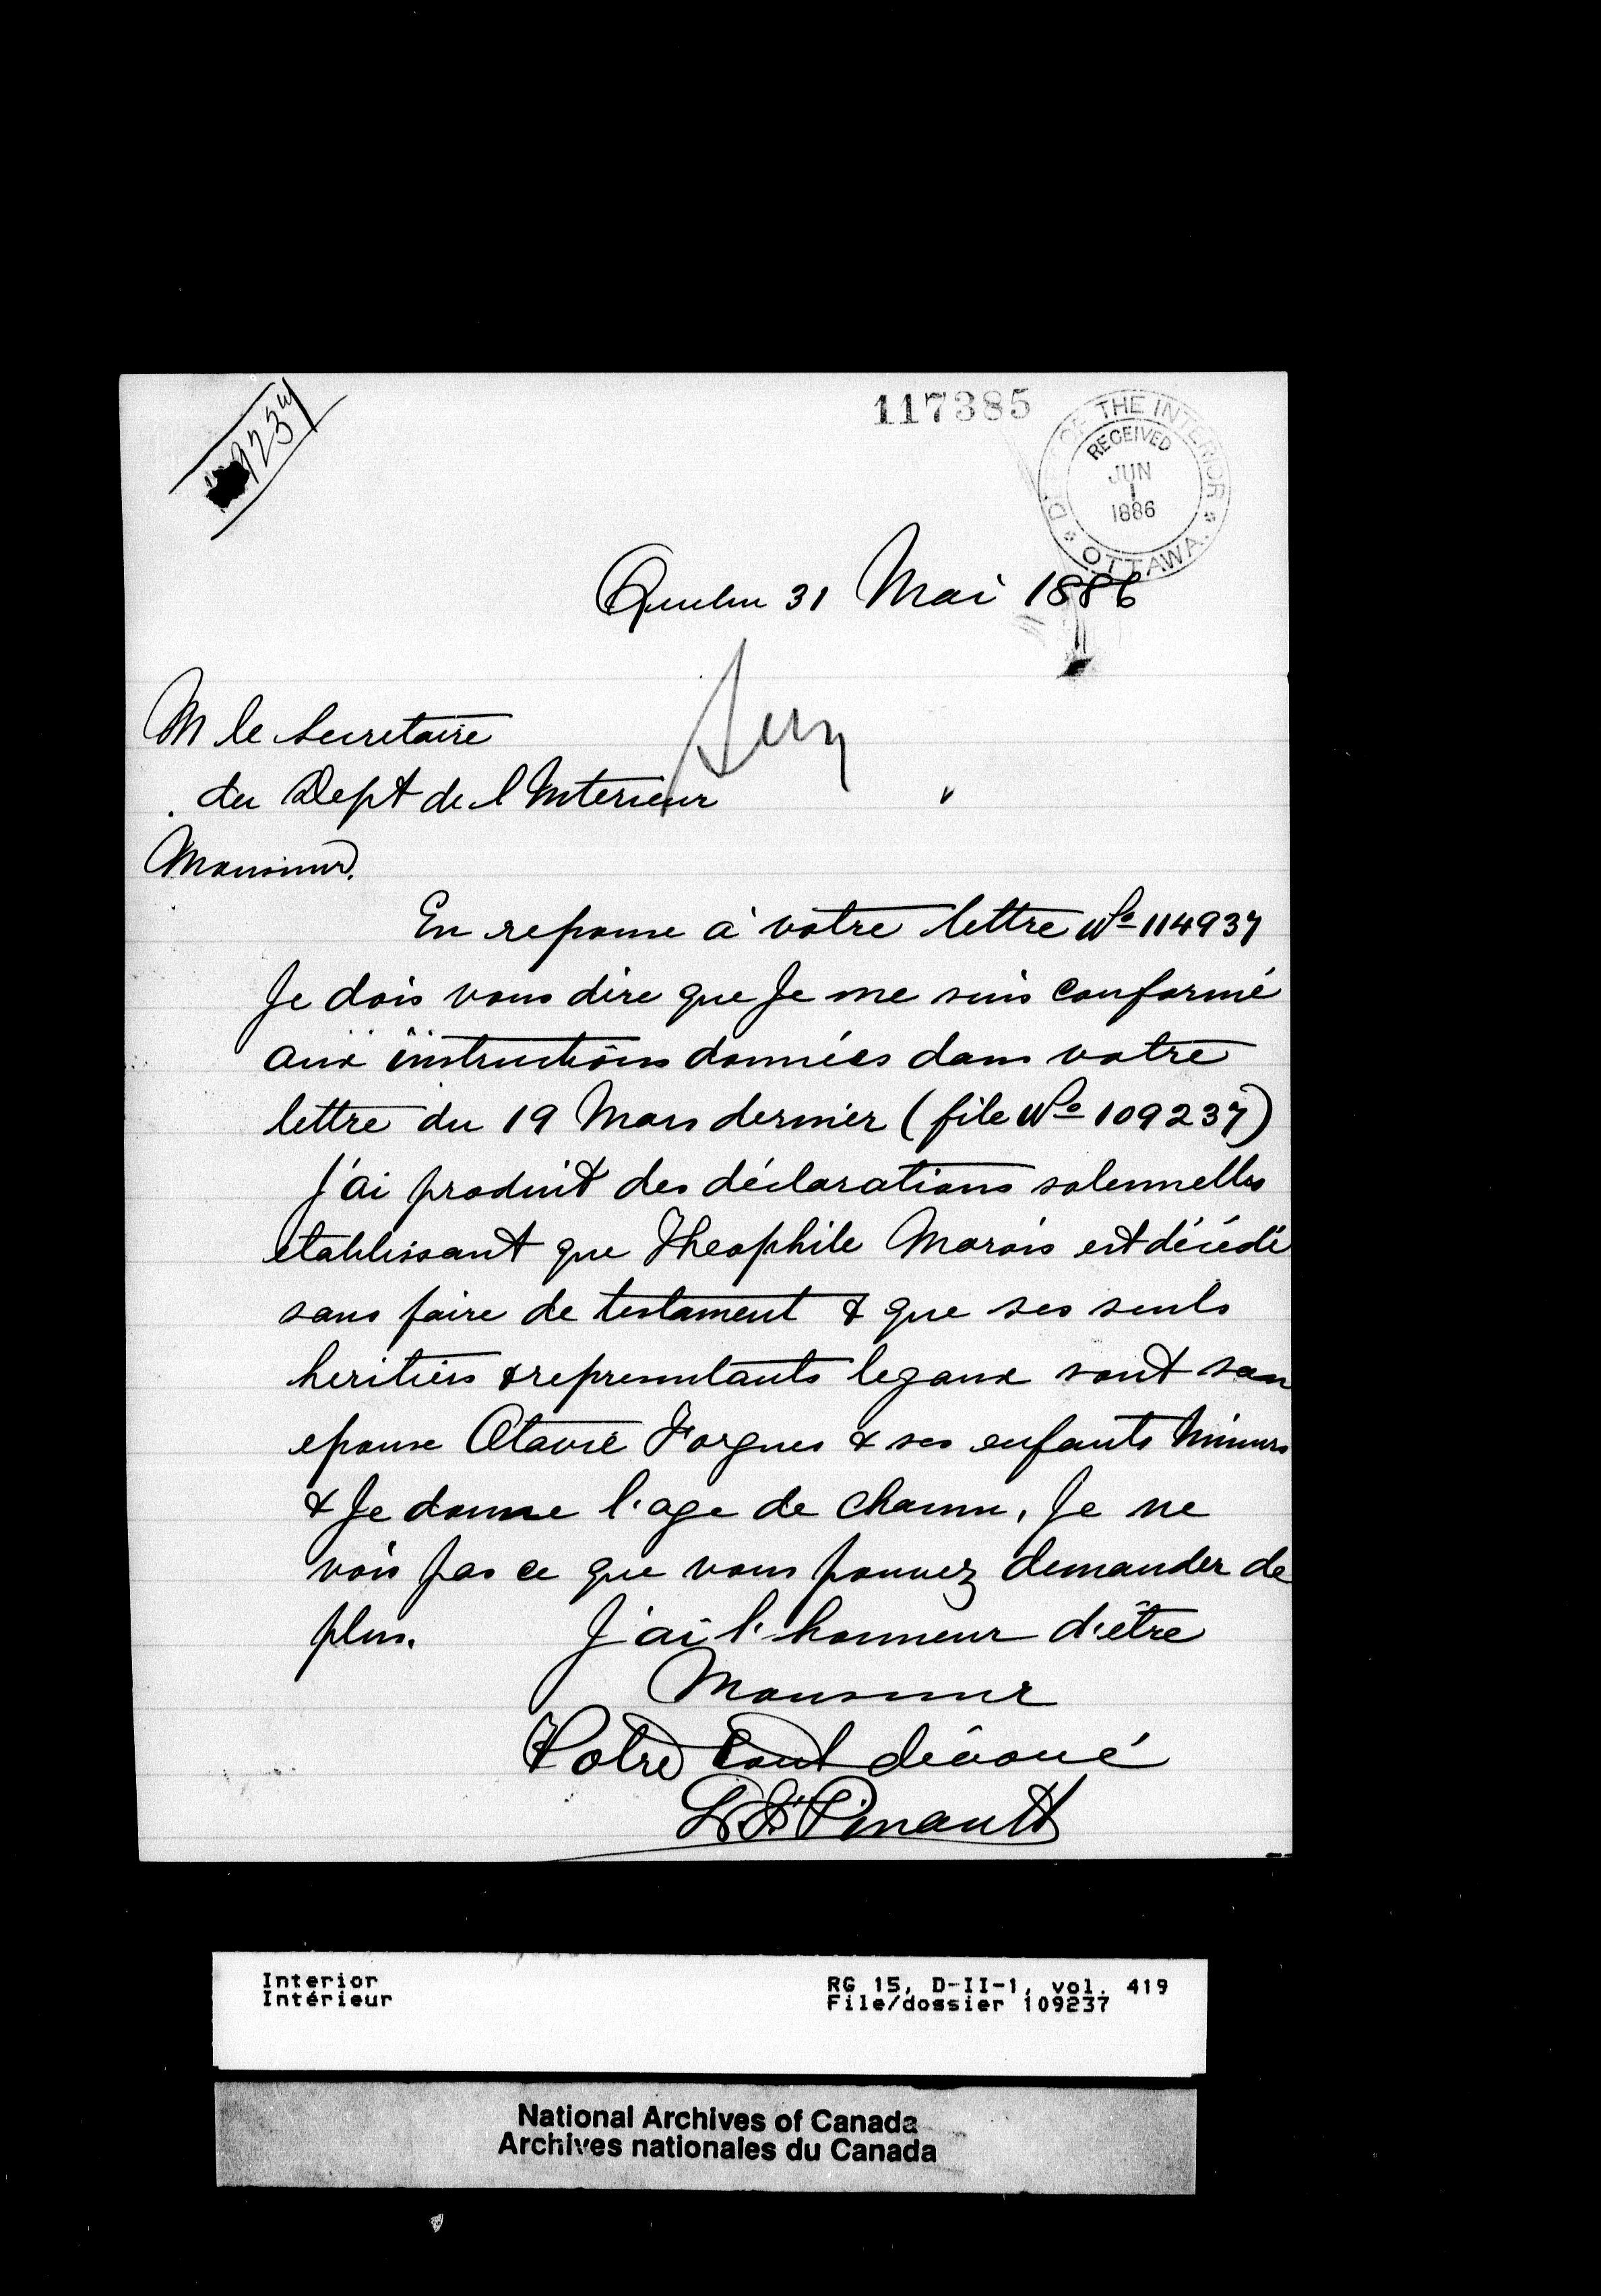 117385
DEPT OF THE INTERIOR
RECEIVED
JUN
1
1886
OTTAWA.
Quebec 31 Mai 1886
M le Secretaire
du Dept de l Interieur
Monsieur.
En reponse à votre lettre No 114937
Je dois vous dire que Je me suis conformé
aux instructions données dans votre
lettre du 19 Mars dernier (file No 109237)
J'ai produit des déclarations solennelles
etablissant que Theophile Marois est décédé
sans faire de testament & que ses seuls
heritiers & representants legaux sont son
epouse Otavie Forgues & ses enfants Mineurs
& Je donne l'age de chacun, Je ne
vois pas ce que vous pouvez demander de
plus. J'ai l'honneur d'être
Monsieur
Votre tout dévoué
Pinault
Interior
Intérieur
RG 15, D-II-1, vol. 419
File/dossier 109237
National Archives of Canada
Archives nationales du Canada